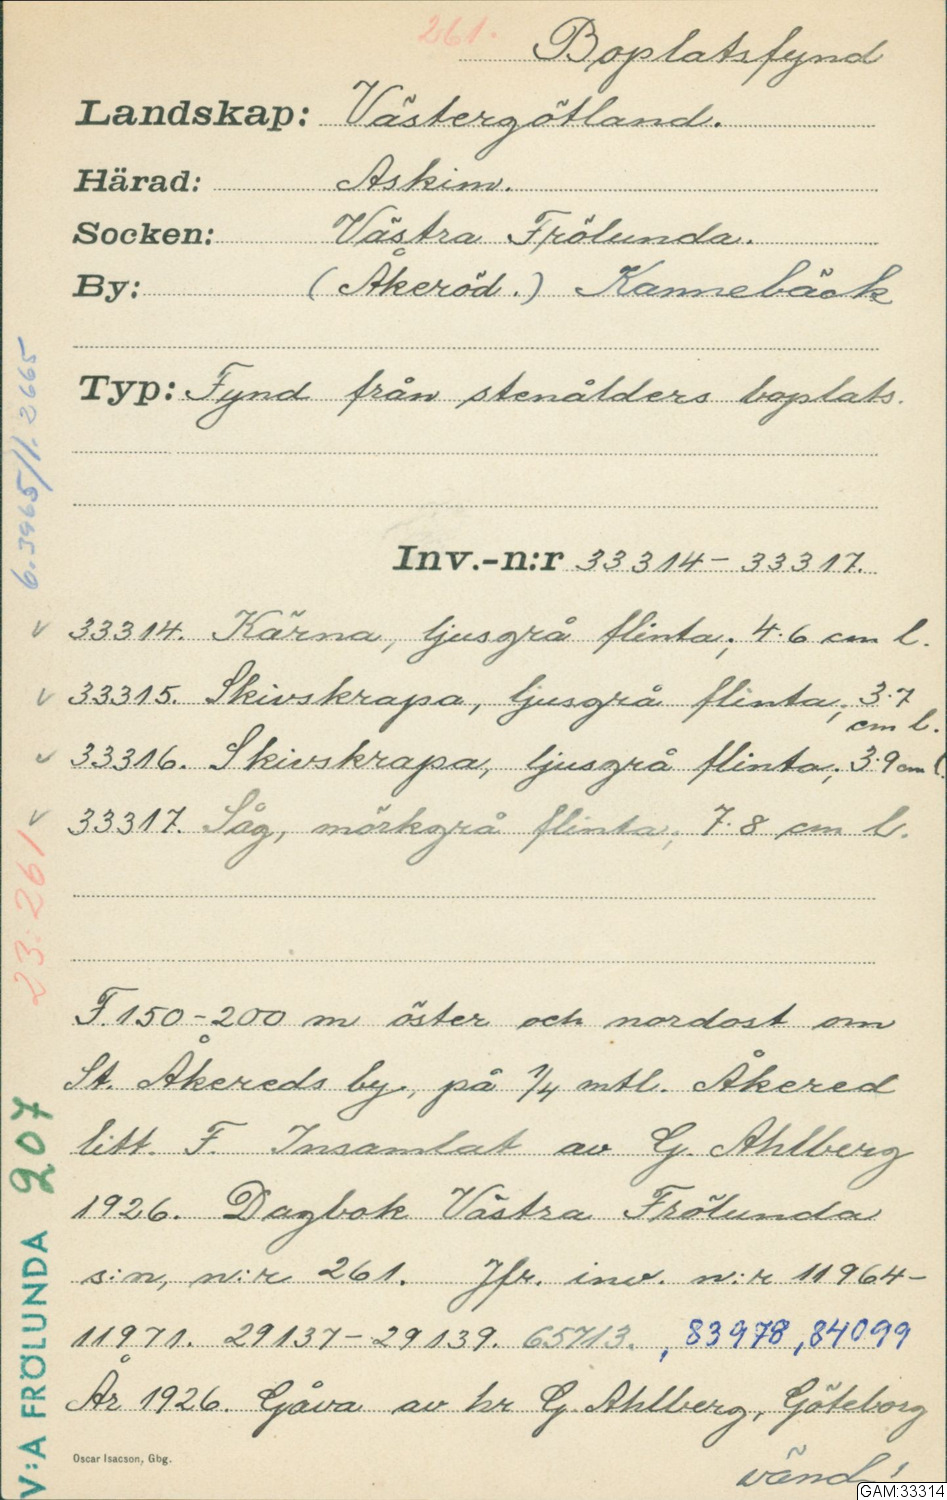 261.
Boplatsfynd
Landskap: Västergötland.
Härad: Askim.
Socken: Västra Frölunda.
By: (Åkeröd.) Kannebäck
Typ: Fynd från stenålders boplats.
Inv.-n:r 33314-33317.
v 33314. Kärna, ljusgrå flinta; 4.6 cm l.
v 33315. Skivskrapa, ljusgrå flinta; 3.7 cm l.
v 33316. Skivskrapa, ljusgrå flinta; 3.9 cm l.
v 33317. Såg, mörkgrå flinta; 7.8 cm l.
F. 150-200 m öster och nordost om
St. Åkereds by, på 1/4 mtl. Åkered
litt. F. Insamlat av G. Ahlberg
1926. Dagbok Västra Frölunda
s:n, n:r 261. Jfr. inv. n:r 11964-
11971. 29137-29139. 65713. , 83978, 84099
År 1926. Gåva av hr G. Ahlberg, Göteborg
vänd!
Oscar Isacson, Gbg.
GAM:33314
V:A FRÖLUNDA 207
23:261
6.3965/1.2665